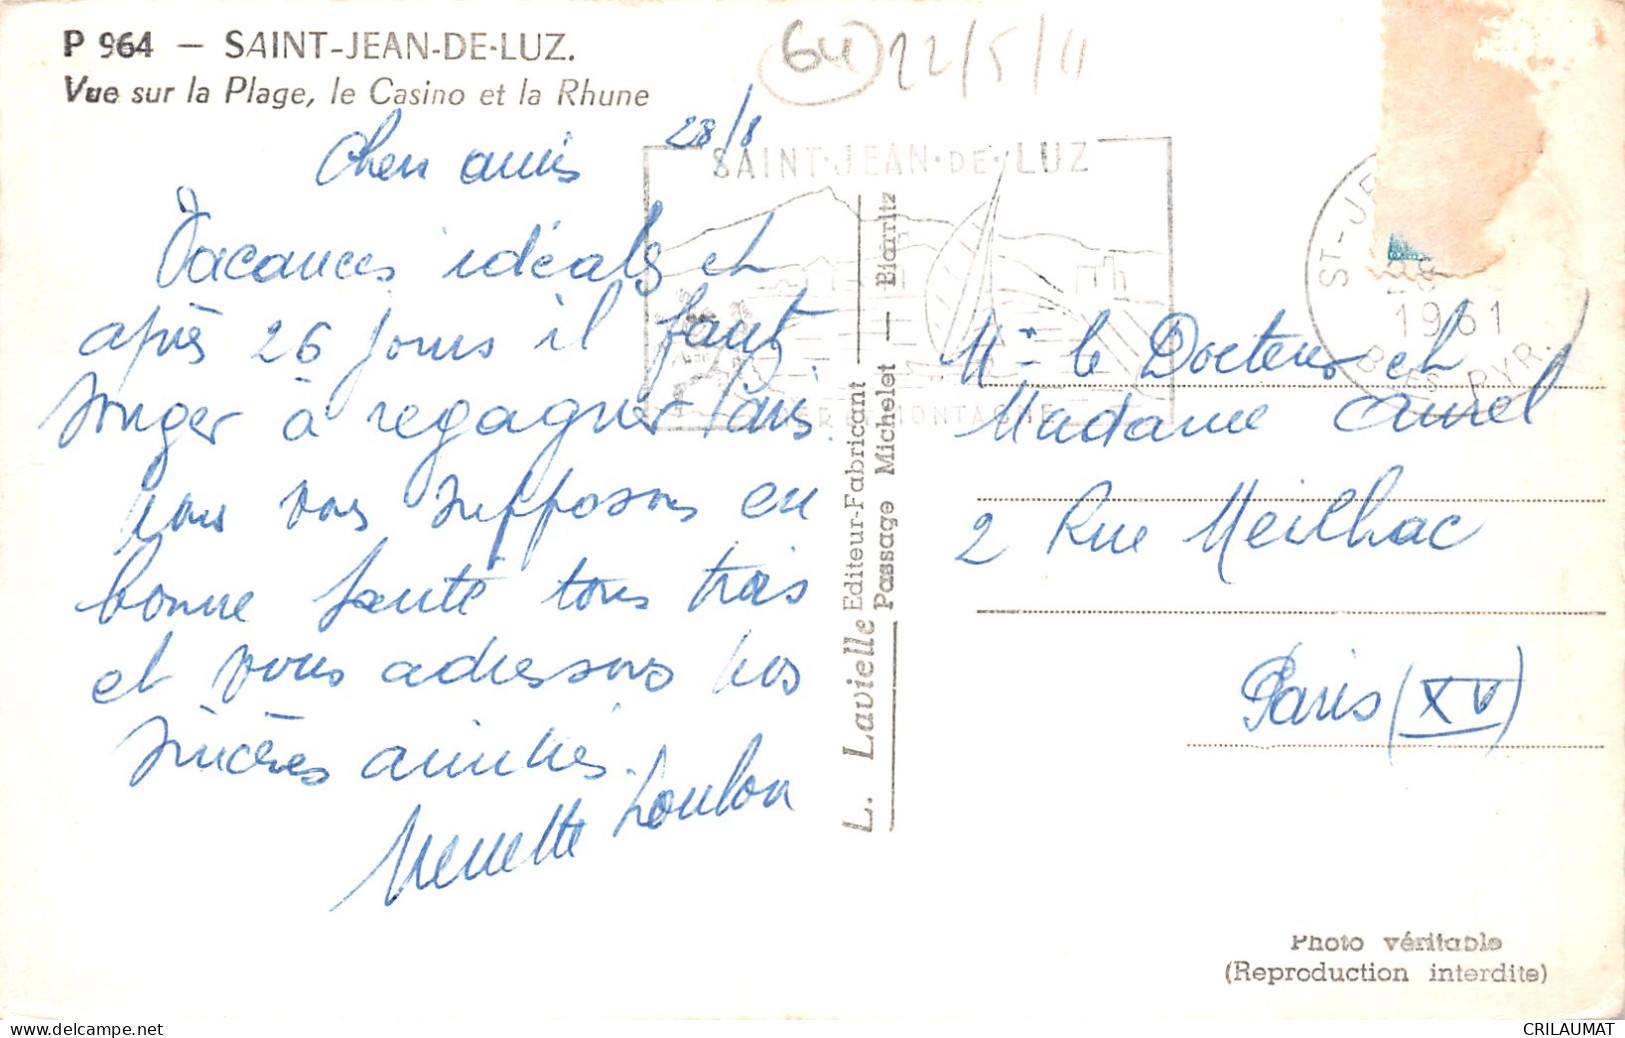 P 964 — SAINT-JEAN-DE-LUZ.
Vue sur la Plage, le Casino et la Rhune
64 22/5/11
28/8
Chers amis
Vacances idéales et
après 26 jours il faut
songer à regagner Paris.
nous vous supposons en
bonne santé tous trois
et vous adressons nos
sincères amitiés.
Nenette Loulou
SAINT-JEAN-DE-LUZ
MER ET MONTAGNE
L. Lavielle Editeur-Fabricant
Passage Michelet — Biarritz
ST-JE
28
1961
BSES PYR.
Mr le Docteur et
Madame
2 Rue Meilhac
Paris (XV)
Photo véritable
(Reproduction interdite)
https://www.delcampe.net
CRILAUMAT